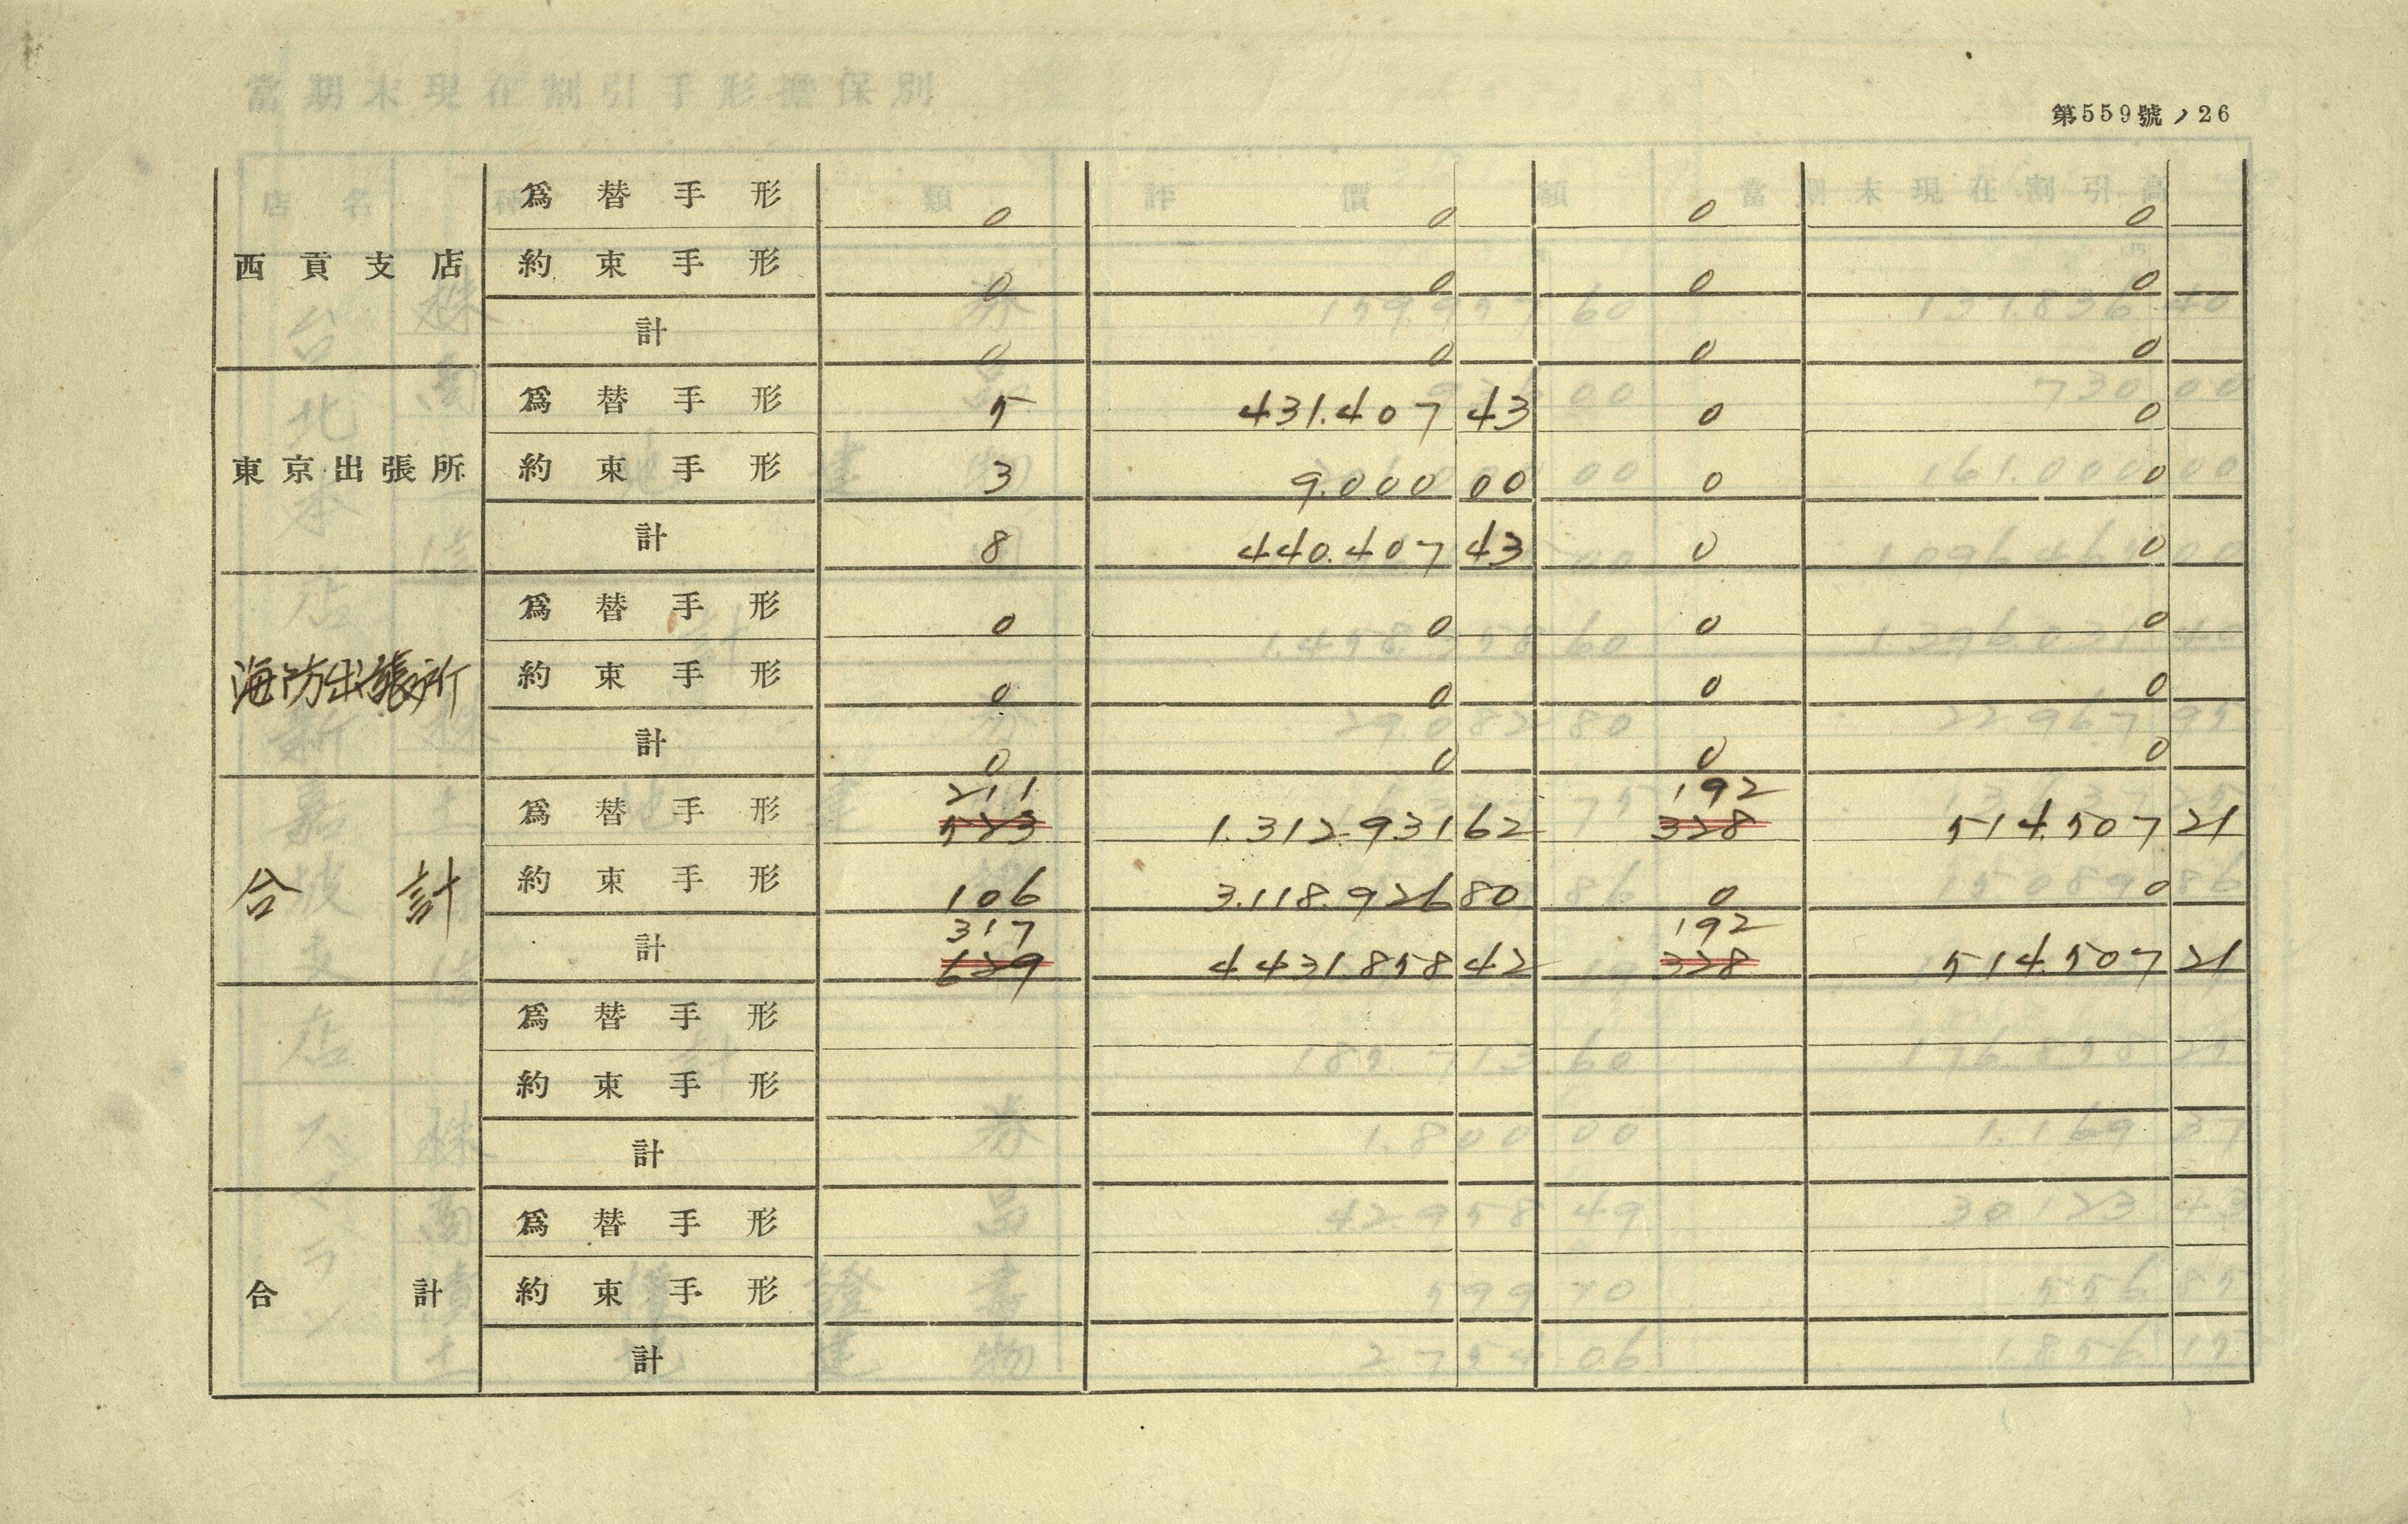 第559號ノ26
西貢支店
爲替手形 0 0 0 0
約束手形 0 0 0 0
計 0 0 0 0
東京出張所
爲替手形 5 431.407 43 0 0
約束手形 3 9.000 00 0 0
計 8 440.407 43 0 0
海防出張所
爲替手形 0 0 0 0
約束手形 0 0 0 0
計 0 0 0 0
合計
211 192
爲替手形 523 1.312.931 62 328 514.507 21
約束手形 106 3.118.926 80 0 0
317 192
計 629 4.431.858 42 328 514.507 21
爲替手形
約束手形
計
合計
爲替手形
約束手形
計